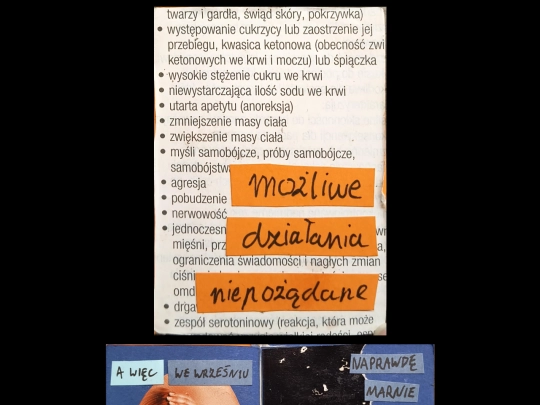 twarzy i gardła, świąd skóry, pokrzywka)
• występowanie cukrzycy lub zaostrzenie jej
przebiegu, kwasica ketonowa (obecność
ketonowych we krwi i moczu) lub śpiączka
• wysokie stężenie cukru we krwi
• niewystarczająca ilość sodu we krwi
• utarta apetytu (anoreksja)
• zmniejszenie masy ciała
• zwiększenie masy ciała
• myśli samobójcze, próby samobójcze,
• agresja
• pobudzenie
• nerwowość
mięśni,
ograniczenia świadomości i nagłych zmian
• zespół serotoninowy (reakcja, która może
możliwe
działania
niepożądane
A WIĘC WE WRZEŚNIU
NAPRAWDĘ
MARNIE